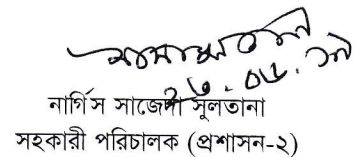 ২৬.০৬.১৭
নার্গিস সাজেদা সুলতানা
সহকারী পরিচালক (প্রশাসন-২)